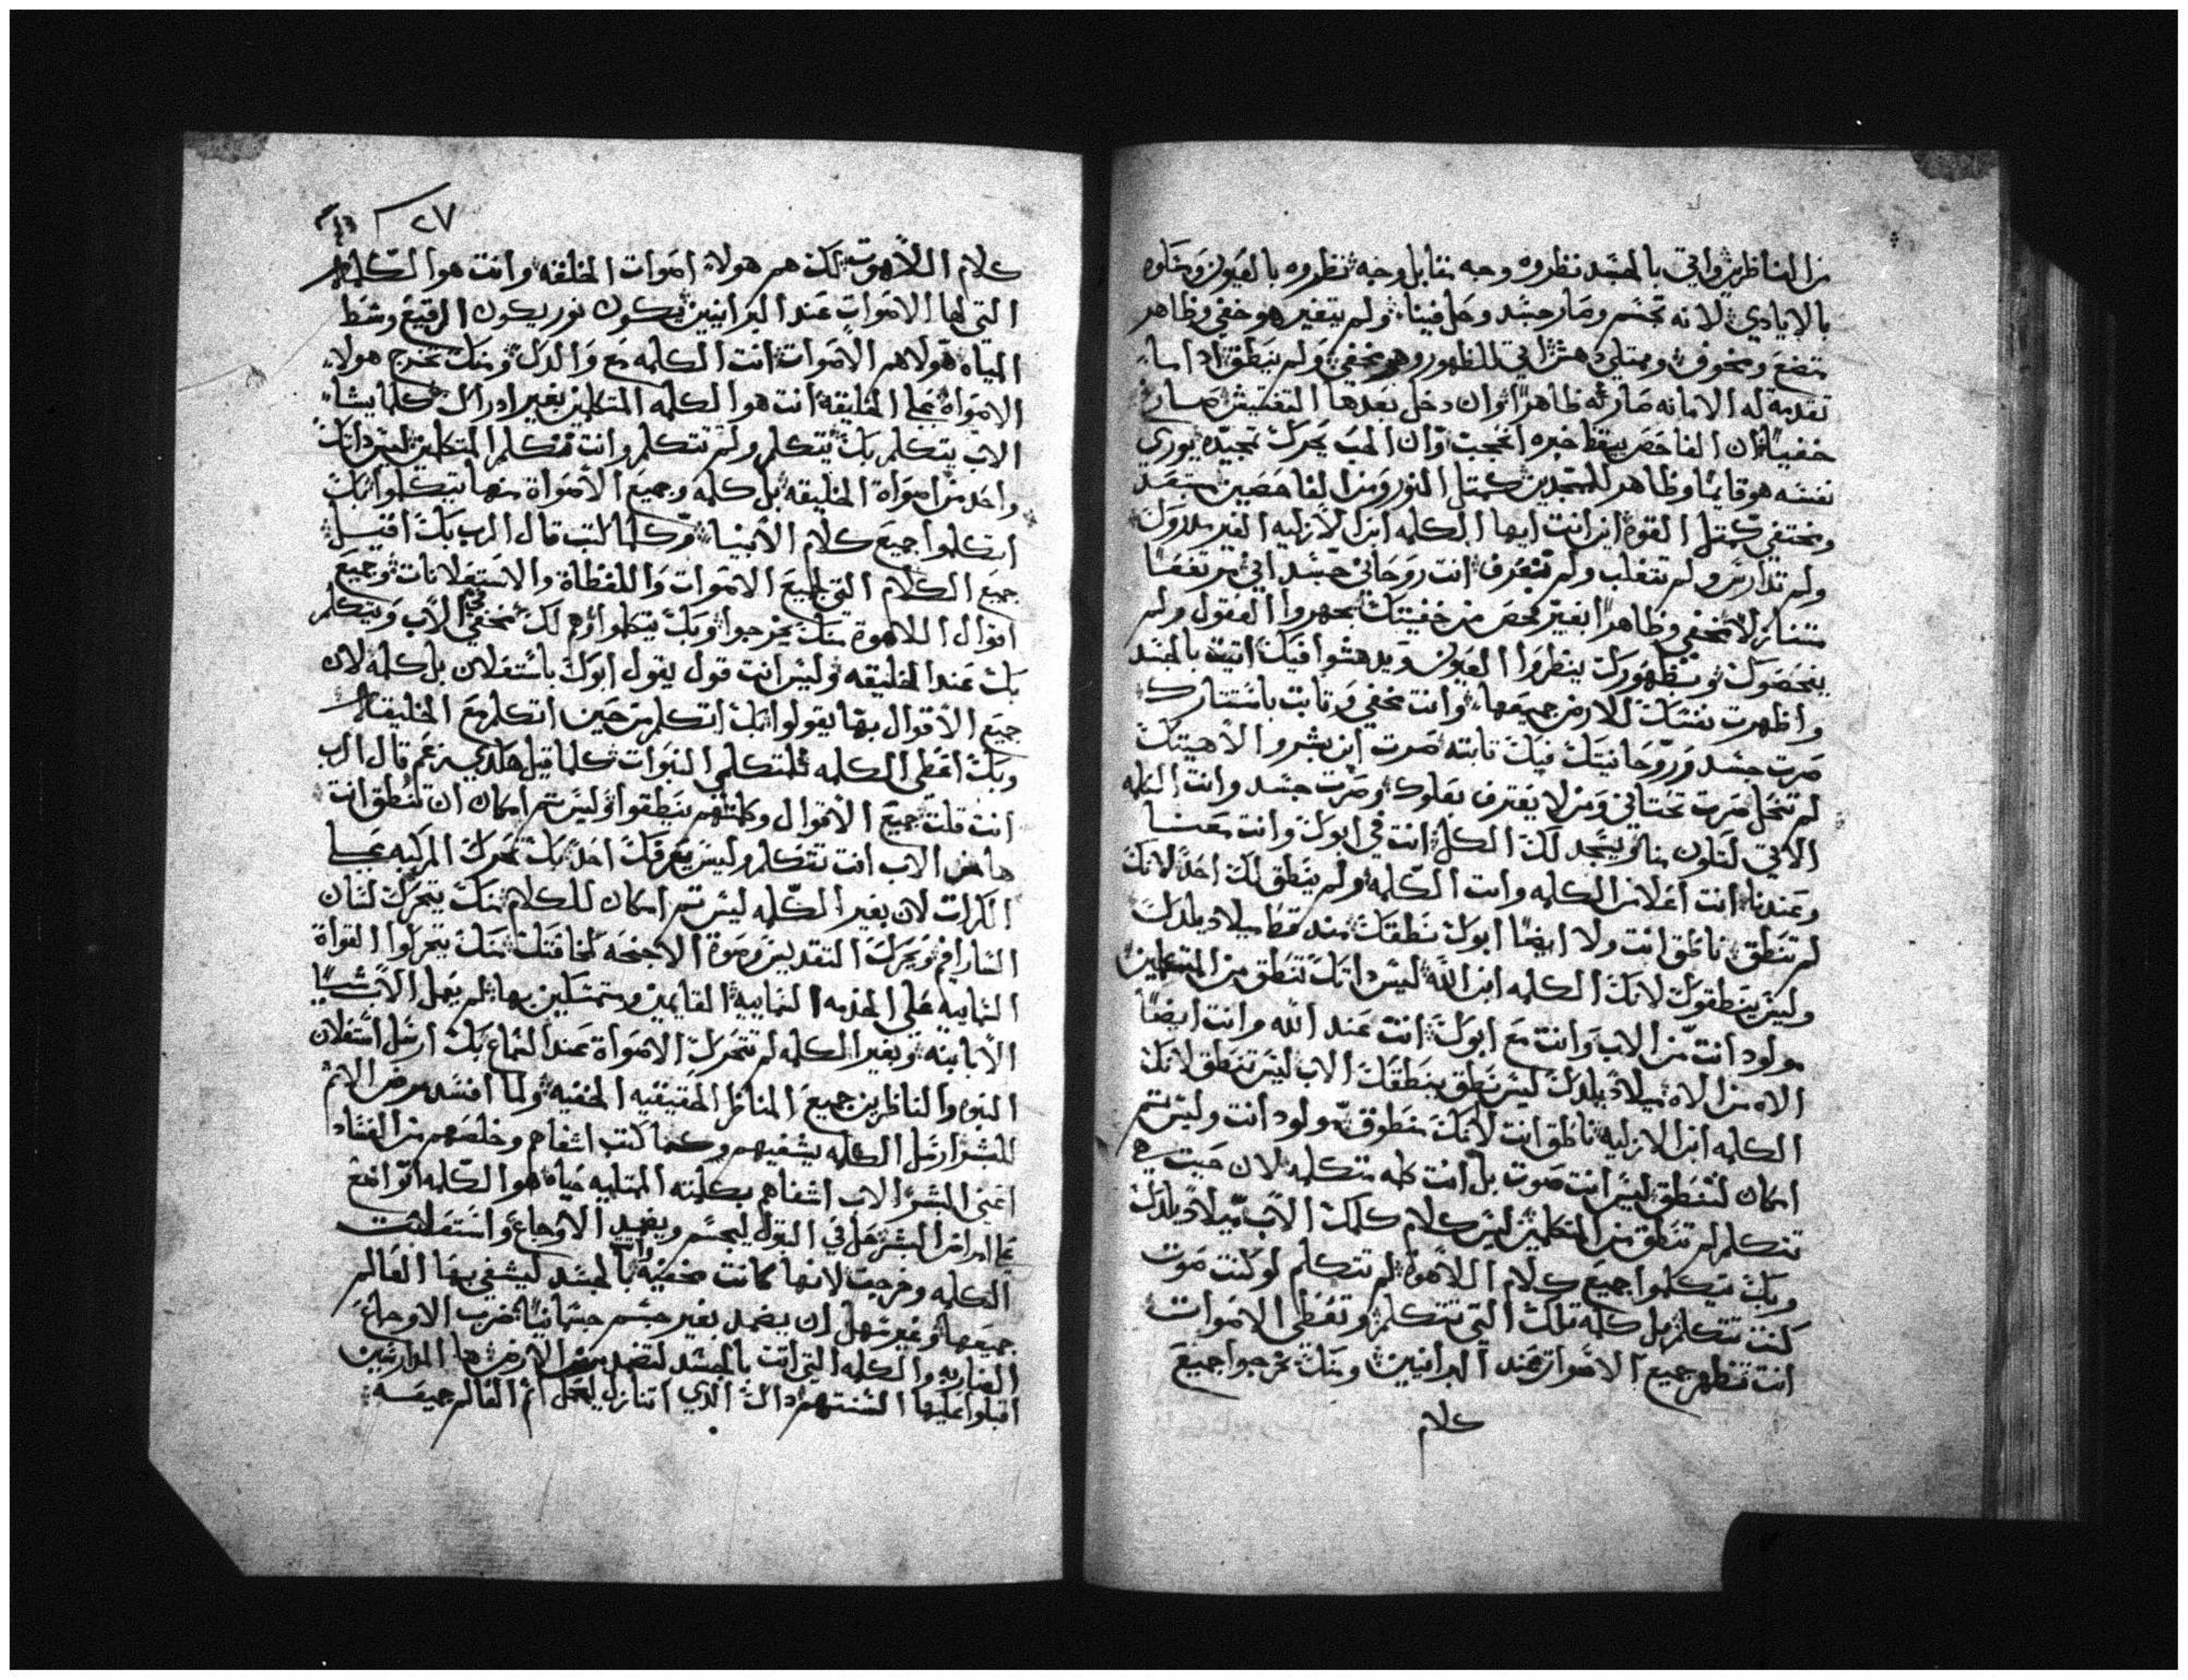 من الناظرين واتي بالجسد نظروه وجه مقابل وجه نظروه بالعيون
بالايادي لانه تجسم وصار جسد وحل فينا ولم يتغير هو خفي وظاهر
متضع ومخوف للظهور وهو مخفي ولم ينطق
تقدمة له الامانه صارله ظاهرًا وان دخل بعدها التفتيش صاير
خفيًا ان الفاحص خبره وان الحب يحرك تمجيده يوري
نفسه هو قايمًا وظاهر للممجدين كمثل النور ومن الفاحصين مبتعد
ومختفي كمثل القوة انت ايها الكلمه ابن الازليه الغير مدروك
ولم تدارس ولم تتغلب ولم تتعرف انت روحاني جسداني
مخفي وظاهرًا بغير فحص من خفيتك العقول ولم
يفحصوك وبظهورك ينظروا العيون ويدهشوا فيك اتيت بالجسد
واظهرت نفسك للارض جميعها وانت مخفي وثابت باستتارك
صرت جسد وروحانيتك فيك ثابته صرت ابن بشر والاهيتك
لم تنحل صرت تحتاني ومن لا يعترف بعلوك وصرت جسد وانت الكلمه
الاتي لتكون منا ويسجد لك الكل انت في ابوك وانت معنا
وعندنا انت اعلا من الكلمه وانت الكلمه ولم ينطق لك احدًا لانك
لم تنطق ناطق انت ولا ايضًا ابوك نطقك منذ قط ميلاد يلدك
وليس ينطقوك لانك الكلمه ابن الله ليس ذاتك تنطق من المتكلمين
مولود انت من الاب وانت مع ابوك انت عند الله وانت ايضًا
الاه من الاه ميلاد يلدك ليس نطق ينطقك الاب ليس تنطق لانك
الكلمه ابن الازليه ناطق انت لانك منطوق مولود انت وليس ثم
امكان لتنطق ليس انت صوت بل انت كلمه متكلمه لان حيث
تتكلم لم تنطق من المتكلمين ليس كلام كلمك الاب ميلاد يلدك
وبك يتكلموا جميع كلام اللاهوة لم تتكلم لو كنت صوت
كنت تتكلم بل كلمه تلك التي تتكلم وتعطي الاصوات
انت تظهر جميع الاصوات عند البرانيين ومنك يخرجوا جميع
كلام
٢٧
كلام اللاهوت لكن هم هولاء اصوات الخلقه وانت هو الكلمه
التي لها الاصوات عند البرانيين يكون نور يكون الرقيع وسط
المياه هولا هم الاصوات انت الكلمه مع والدك ومنك تخرج هولاء
الاصواة على الخليقه انت هو الكلمه المتكلمين بغير ادراك كلما يشاء
الاب يتكلم بك يتكلم ولم تتكلم وانت متكلم المتكلمين ليس ذاتك
واحد من اصواة الخليقه بل كلمه وجميع الاصواة منها يتكلموا بك
اتكلموا جميع كلام الانبياء وكلما كتب قال الرب بك اقتيل
جميع الكلام التي لجميع الاصوات واللفظاة والاستعلانات وجميع
اقوال اللاهوة منك يخرجوا وبك يتكلموا مخفي في الاب ويتكلم
بك عند الخليقه وليس انت قول يقول ابوك باستعلان بل كلمه لان
جميع الاقوال بها يقولوا بك اتكلم من حين اتكلم مع الخليقه
وبك اعطي الكلمه لمتكلمي النبوات كلما قيل هكذي قال الرب
انت قلت جميع الاقوال وكلمتهم ينطقوا وليس ثم امكان ان تنطق انت
الاب انت تتكلم وليس يعرفك احدًا بك تحرك المركبه
الكرات لان بغير الكلمه ليس ثم امكان للكلام منك يتحرك لسان
السارافيم ويحرك التقديس وصوة الاجنحه لمخافتك منك يتحركوا القواة
السماييه على الخدمه السماييه القايمين ومتمسكين بها لم يعمل الاب شيًا
الا بابنه وبغير الكلمه لم تتحرك الاصواة عند السماع بك ارسل استعلان
النبوه والناظرين جميع المناظر الحقيقيه الخفيه ولما افسد مرض الاثم
للبشر ارسل الكلمه يشفيهم وكما كتب اشفاهم وخلصهم من الفساد
اعني البشر الاب اشفاهم بكلمته الممتليه حياة هو الكلمه اتواضع
على امراض البشر حل في البتول ليتجسم ويفيد الاوجاع واستعلنت
الكلمه وخرجت لانها كانت مخفيه واتت بالجسد ليشفي بها العالم
جميعها وغير سهل ان يضمد بغير جسم جسمانيًا ضرب الاوجاع
الضاربه والكلمه التي اتت بالجسد لتضمد مرض الارض ها الدارسين
اقبلوا عليها السنتهم ذاك الذي اتنازل ليحمل اثم العالم جميعه